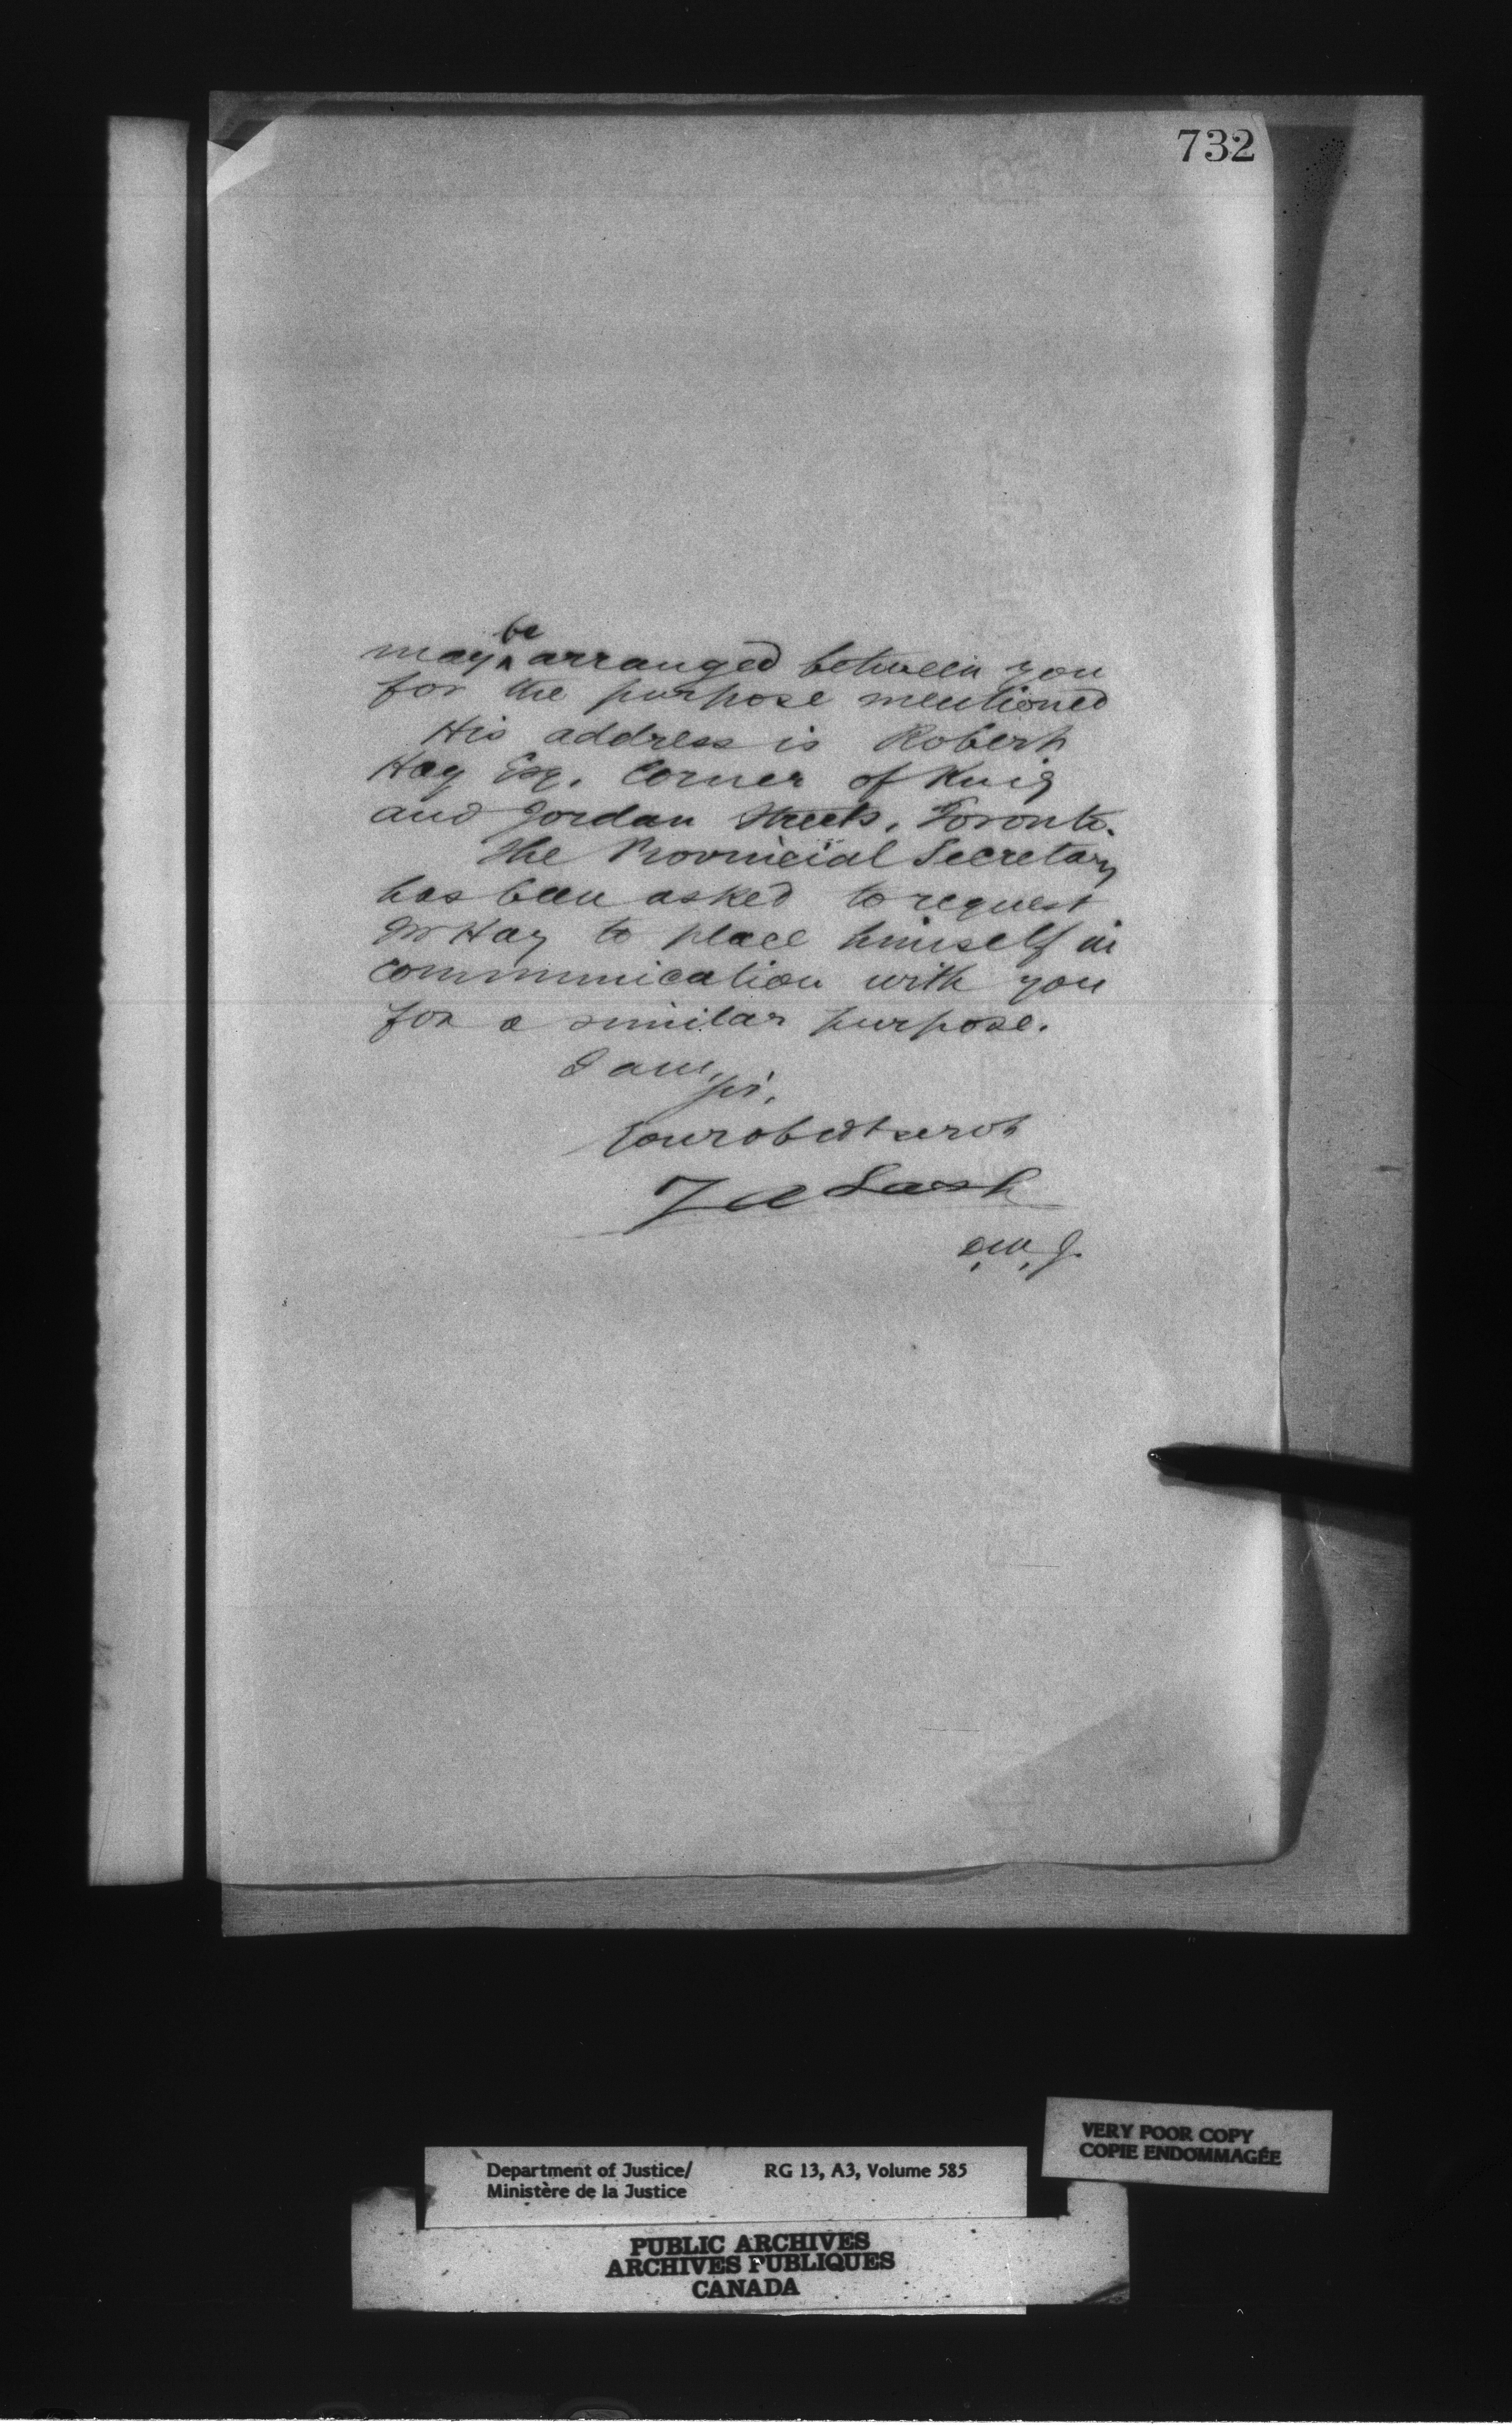 732
may be arranged between you
for the purpose mentioned
His address is Robert
Hay Esq. Corner of King
and Jordan Streets, Toronto.
The Provincial Secretary
has been asked to request
Mr Hay to place himself in
communication with you
for a similar purpose.
I am,
Sir,
Your obedt servt
Z A Lash
D.M.J.
VERY POOR COPY
COPIE ENDOMMAGÉE
Department of Justice/ RG 13, A3, Volume 585
Ministère de la Justice
PUBLIC ARCHIVES
ARCHIVES PUBLIQUES
CANADA